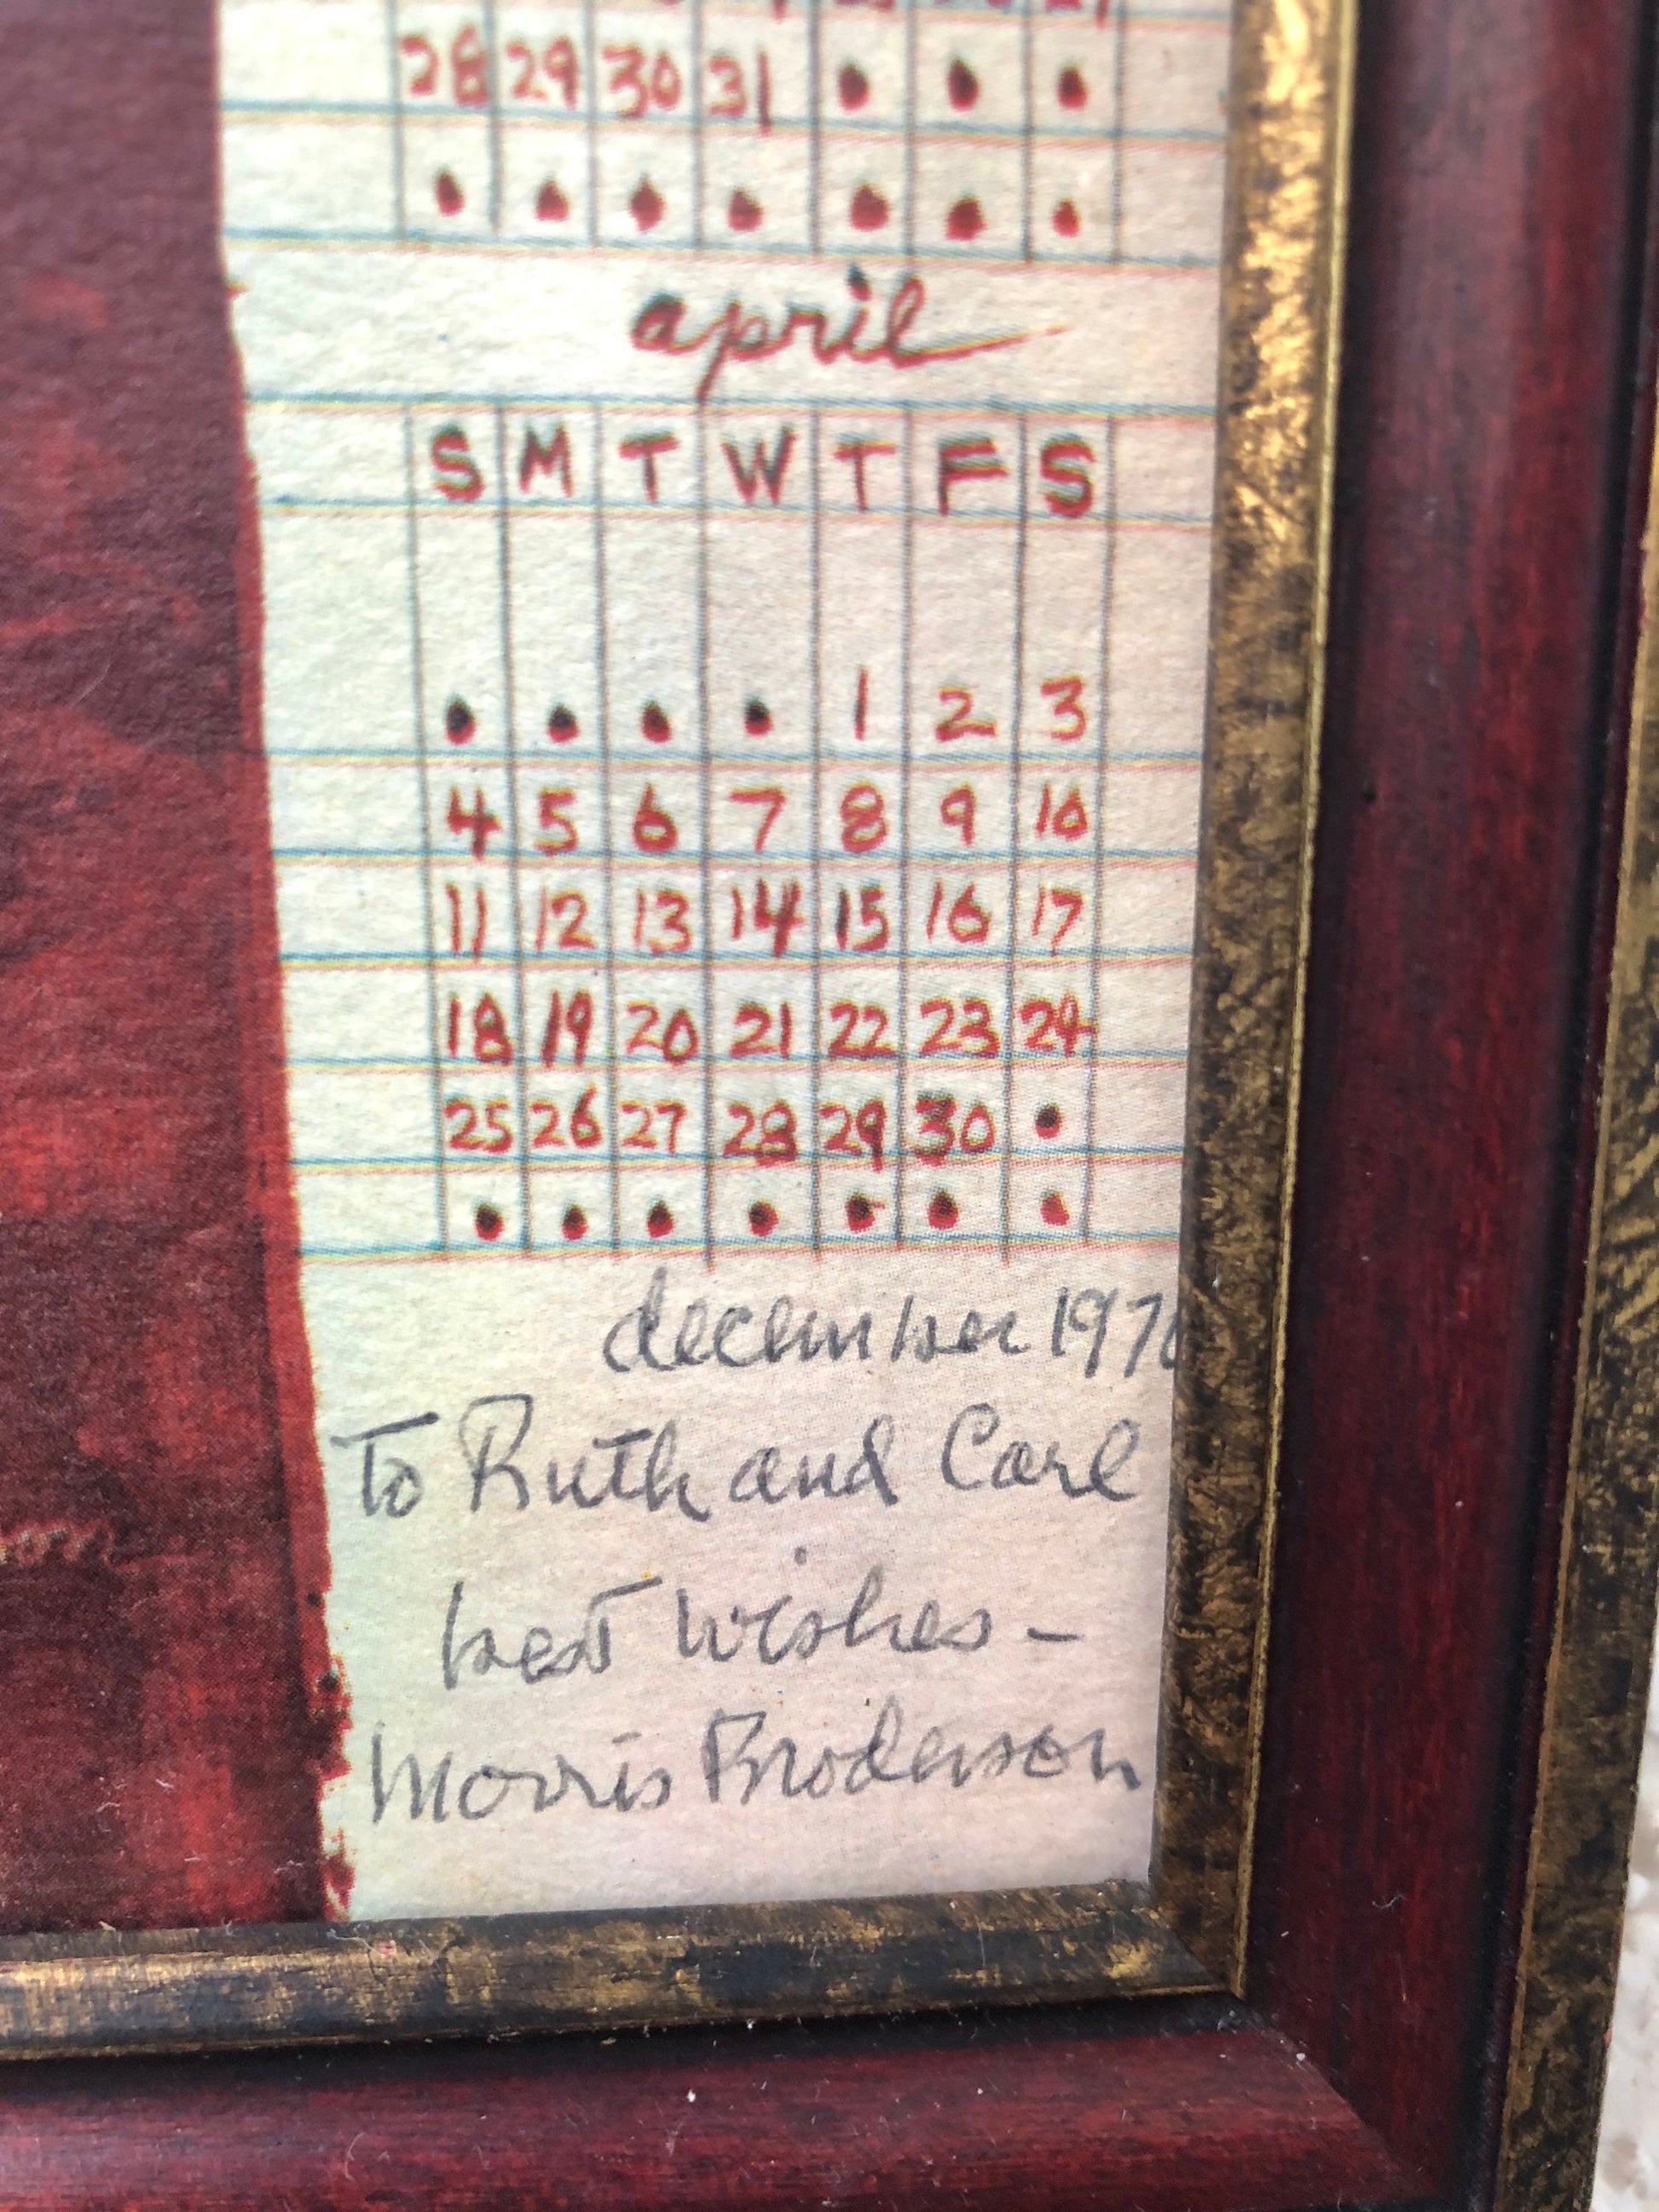 28 29 30 31 • • •
• • • • • • •
april
S M T W T F S
• • • • 1 2 3
4 5 6 7 8 9 10
11 12 13 14 15 16 17
18 19 20 21 22 23 24
25 26 27 28 29 30 •
• • • • • • •
december 197
To Ruth and Carl
best wishes –
Morris Broderson